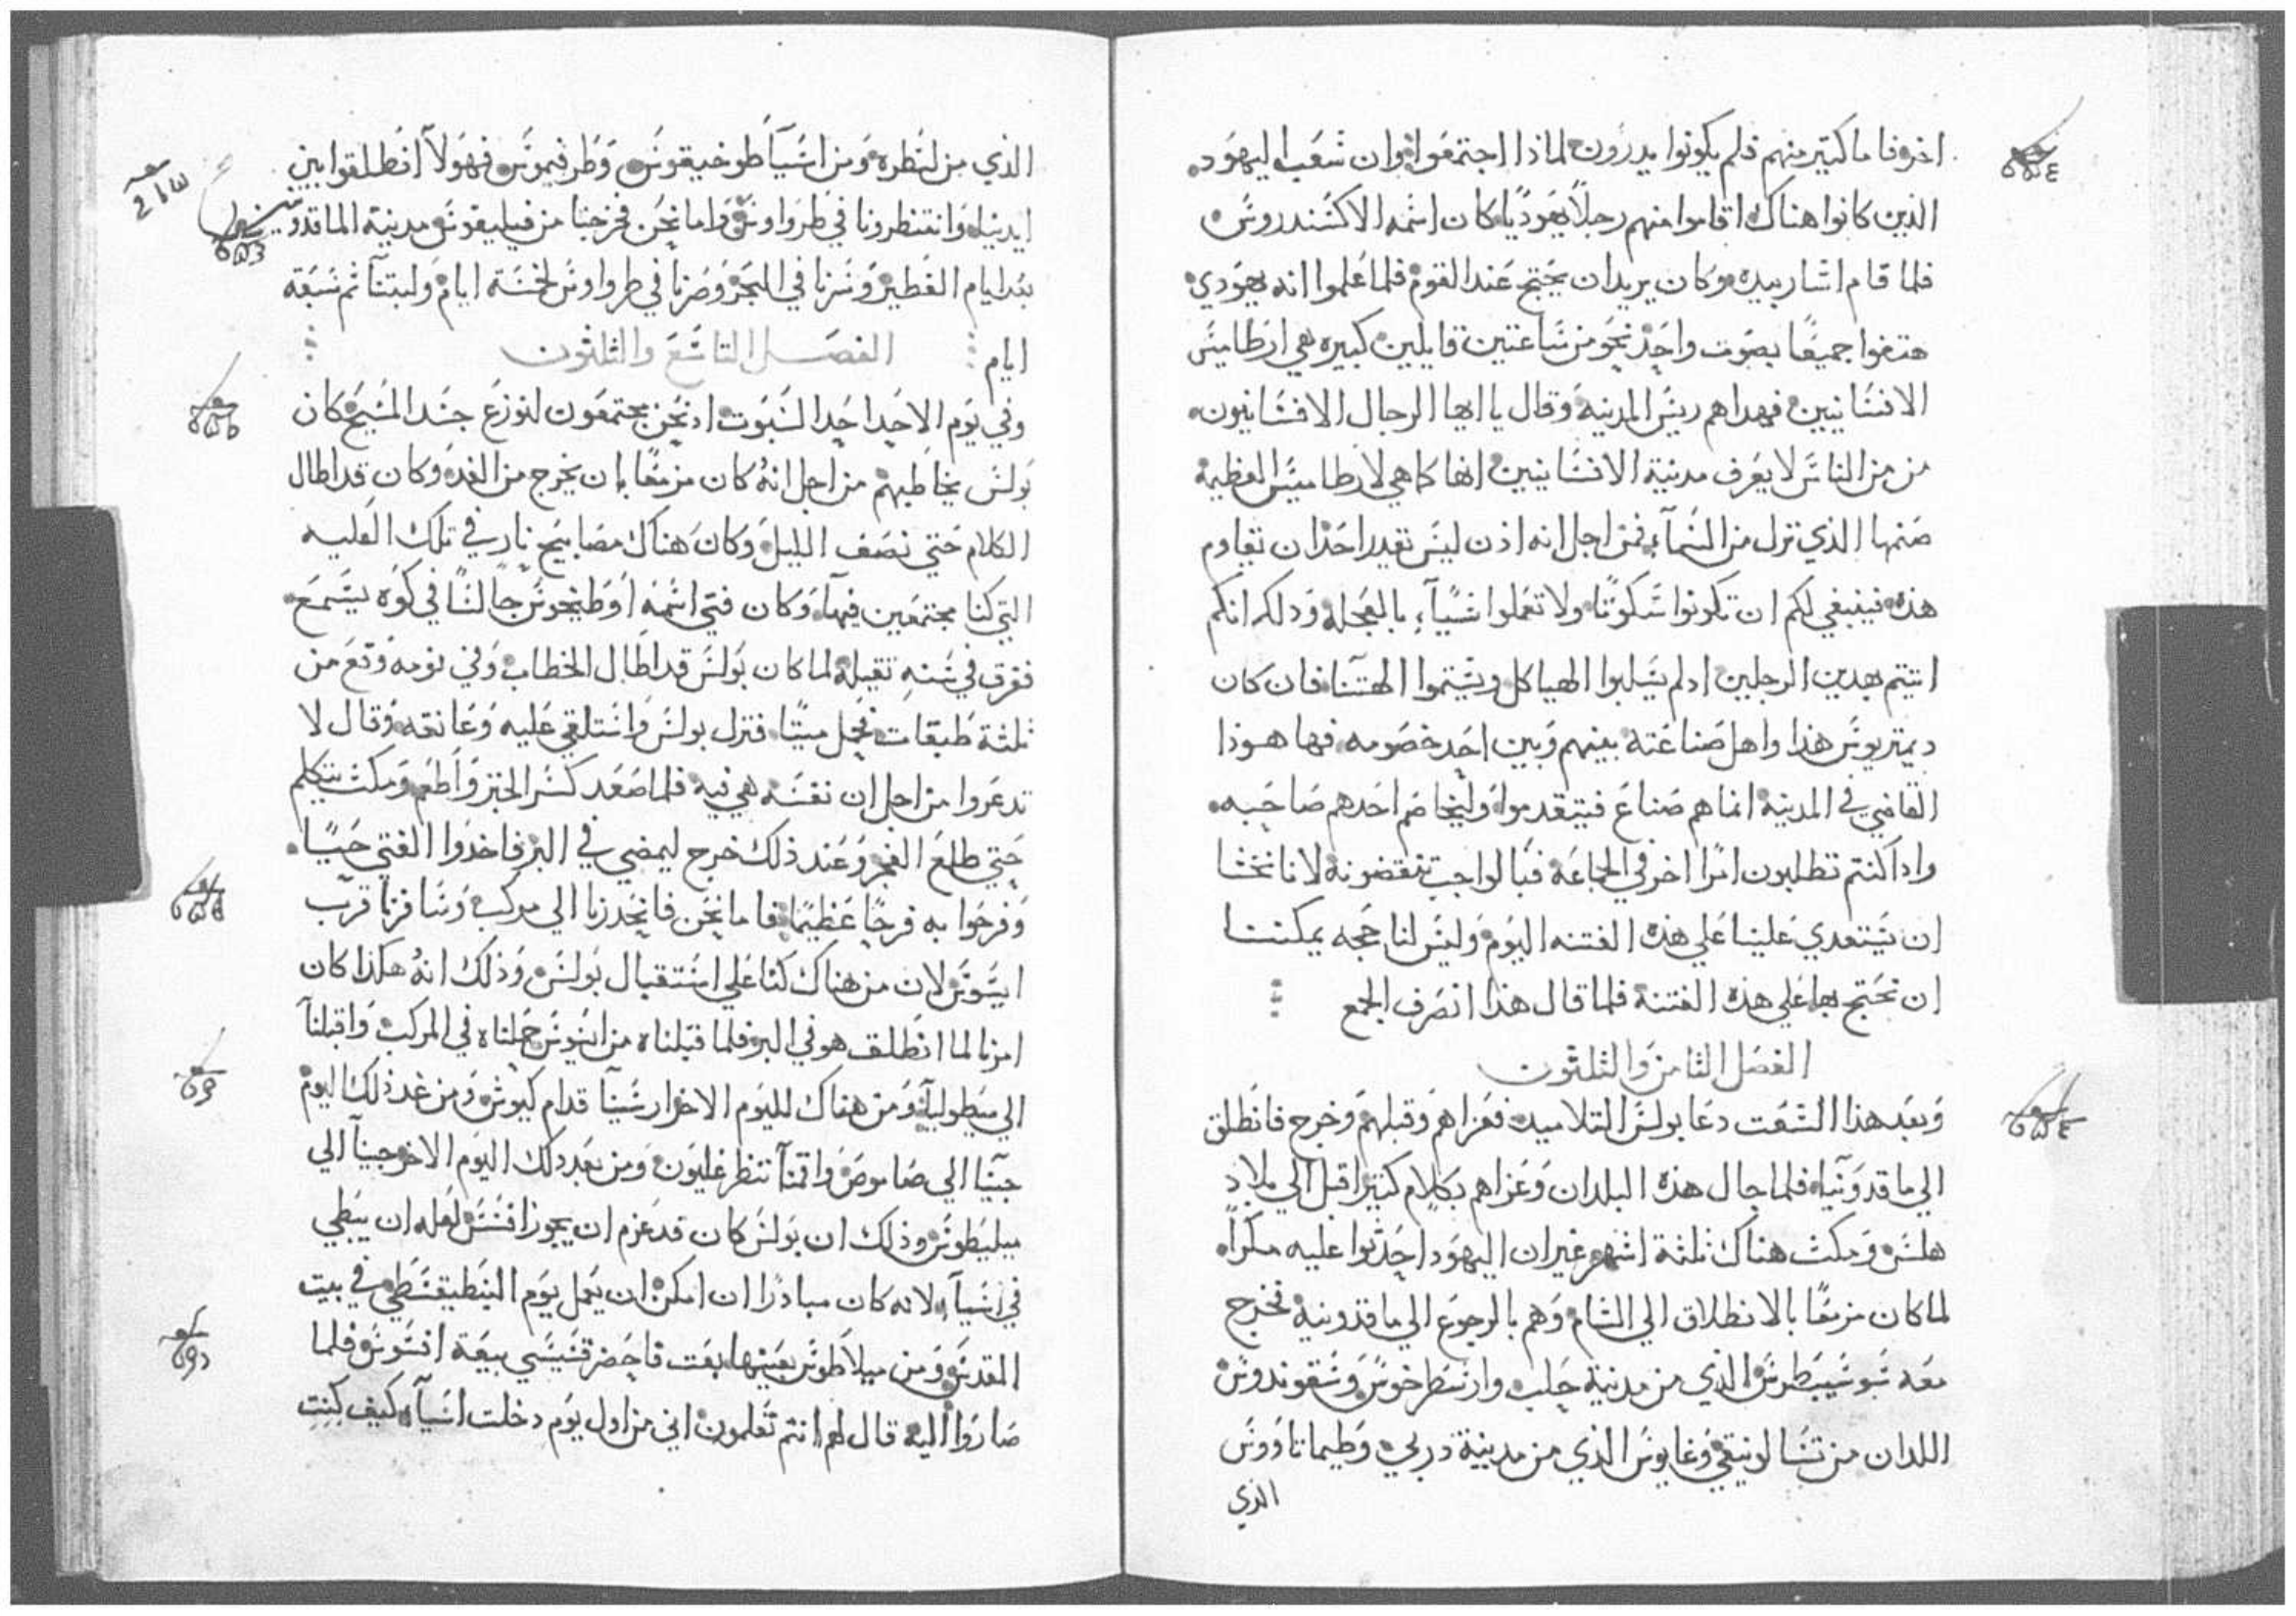 اخر فاما كتير منهم فلم يكونوا يدرون لماذا اجتمعوا وان شعب اليهود
الذين كانوا هناك اقاموا منهم رجلاً يهوديًا كان اسمه الاكسندروس
فلما قام اشار بيده وكان يريد ان يحتج عند القوم فلما علموا انه يهودي
هتفوا جميعًا بصوت واحد نحو من ساعتين قايلين كبيره هي ارطاميس
الافسانيين فهداهم ريس المدينة وقال يا ايها الرجال الافسانيون
من من الناس لا يعرف مدينة الافسانيين انها كاهي لارطاميس العظيمة
صنمها الذي نزل من السمآء فمن اجل انه اذن ليس تقدر احد ان تقاوم
هذه فينبغي لكم ان تكونوا سكوتًا ولا تعملوا شيآء بالعجلة ودلك انكم
اتيتم بهدين الرجلين ادلم يسلبوا الهياكل ويشتموا الهتنا فان كان
ديمتريوس هذا واهل صناعته بينهم وبين احد خصومه فها هوذا
القاضي في المدينة انما هم صناع فيتقدموا وليخاصم احدهم صاحبه
واداكنتم تطلبون امرًا اخر في الجاعة فبالواجب تنقضونه لانا نخشا
ان يستعدي علينا علي هذه الفتنه اليوم وليس لنا حجه يمكننا
ان نحتج بها علي هذه الفتنة فلما قال هذا انصرف الجمع
الفصل الثامن والثلثون
وبعد هذا الشغت دعا بولس التلاميد فعزاهم وقبلهم وخرج فانطلق
الي ماقدونيا فلما جال هذه البلدان وعزاهم بكلام كتير اقبل الي بلاد
هلس ومكث هناك ثلثة اشهر غير ان اليهود احدثوا عليه مكراً
لما كان مزمعًا بالانطلاق الي الشام وهم بالرجوع الي ماقدونية فخرج
معه سوسيبطروس الذي من مدينة حلب وارسطرخوس وسقوندوس
اللدان من تسالونيقي وغايوس الذي من مدينة دربي وطيماتاووس
الذي
الذي من لسطره ومن اسيآ طوخيقوس وطرفيموس فهولآ انطلقوا بين
ايدينا وانتظرونا في طرواوس واما نحن فخرجنا من فيليفوس مدينة الماقدونيين
بعد ايام الفطير وسرنا في البحر وصرنا في طرواوس لخمسة ايام ولبتنا ثم سبعة
ايام
الفصل التاسع والثلثون
وفي يوم الاحد احد السبوت اد نحن مجتمعون لنوزع جسد المسيح كان
بولس يخاطبهم من اجل انه كان مزمعًا بان يخرج من الغد وكان قد اطال
الكلام حتي نصف الليل وكان هناك مصابيح نار في تلك العليه
التي كنا مجتمعين فيها وكان فتي اسمه اوطيخوس جالسًا في كوه يسمع
فغرق في سنه تقيلة لما كان بولس قد اطال الخطاب وفي نومه وقع من
ثلثة طبقات فحمل ميتًا فنزل بولس واستلقي عليه وعانقه وقال لا
تدعروا من اجل ان نفسه هي فيه فلما صعد كسر الخبز واطعم ومكث يتكلم
حتي طلع الفجر وعند ذلك خرج ليمضي في البر فاخذوا الفتي حيًا
وفرحوا به فرحًا عظيمًا فاما نحن فانحدرنا الي مركب وسافرنا قرب
ايسوس لان من هناك كنا علي استقبال بولس وذلك انه هكذا كان
امرنا لما انطلق هو في البر فلما قبلناه من اسوس حملناه في المركب واقبلنآ
الي ميطولينآ ومن هناك لليوم الاخر ارسينآ قدام كيوس ومن غد ذلك اليوم
جينآ الي صاموص واقمنآ تنظر غليون ومن بعد دلك اليوم الاخر جينآ الي
ميليطوس وذلك ان بولس كان قد عزم ان يجوز افسس لعله ان يبطي
في اسيآ لانه كان مبادرًا ان امكن ان يعمل يوم البنطيقسطي في بيت
المقدس ومن ميلاطوس بعينها بعت فاحضر قسيسي بيعة افسوس فلما
صاروا اليه قال لهم انتم تعلمون اني من اول يوم دخلت اسيآ كيف كنت